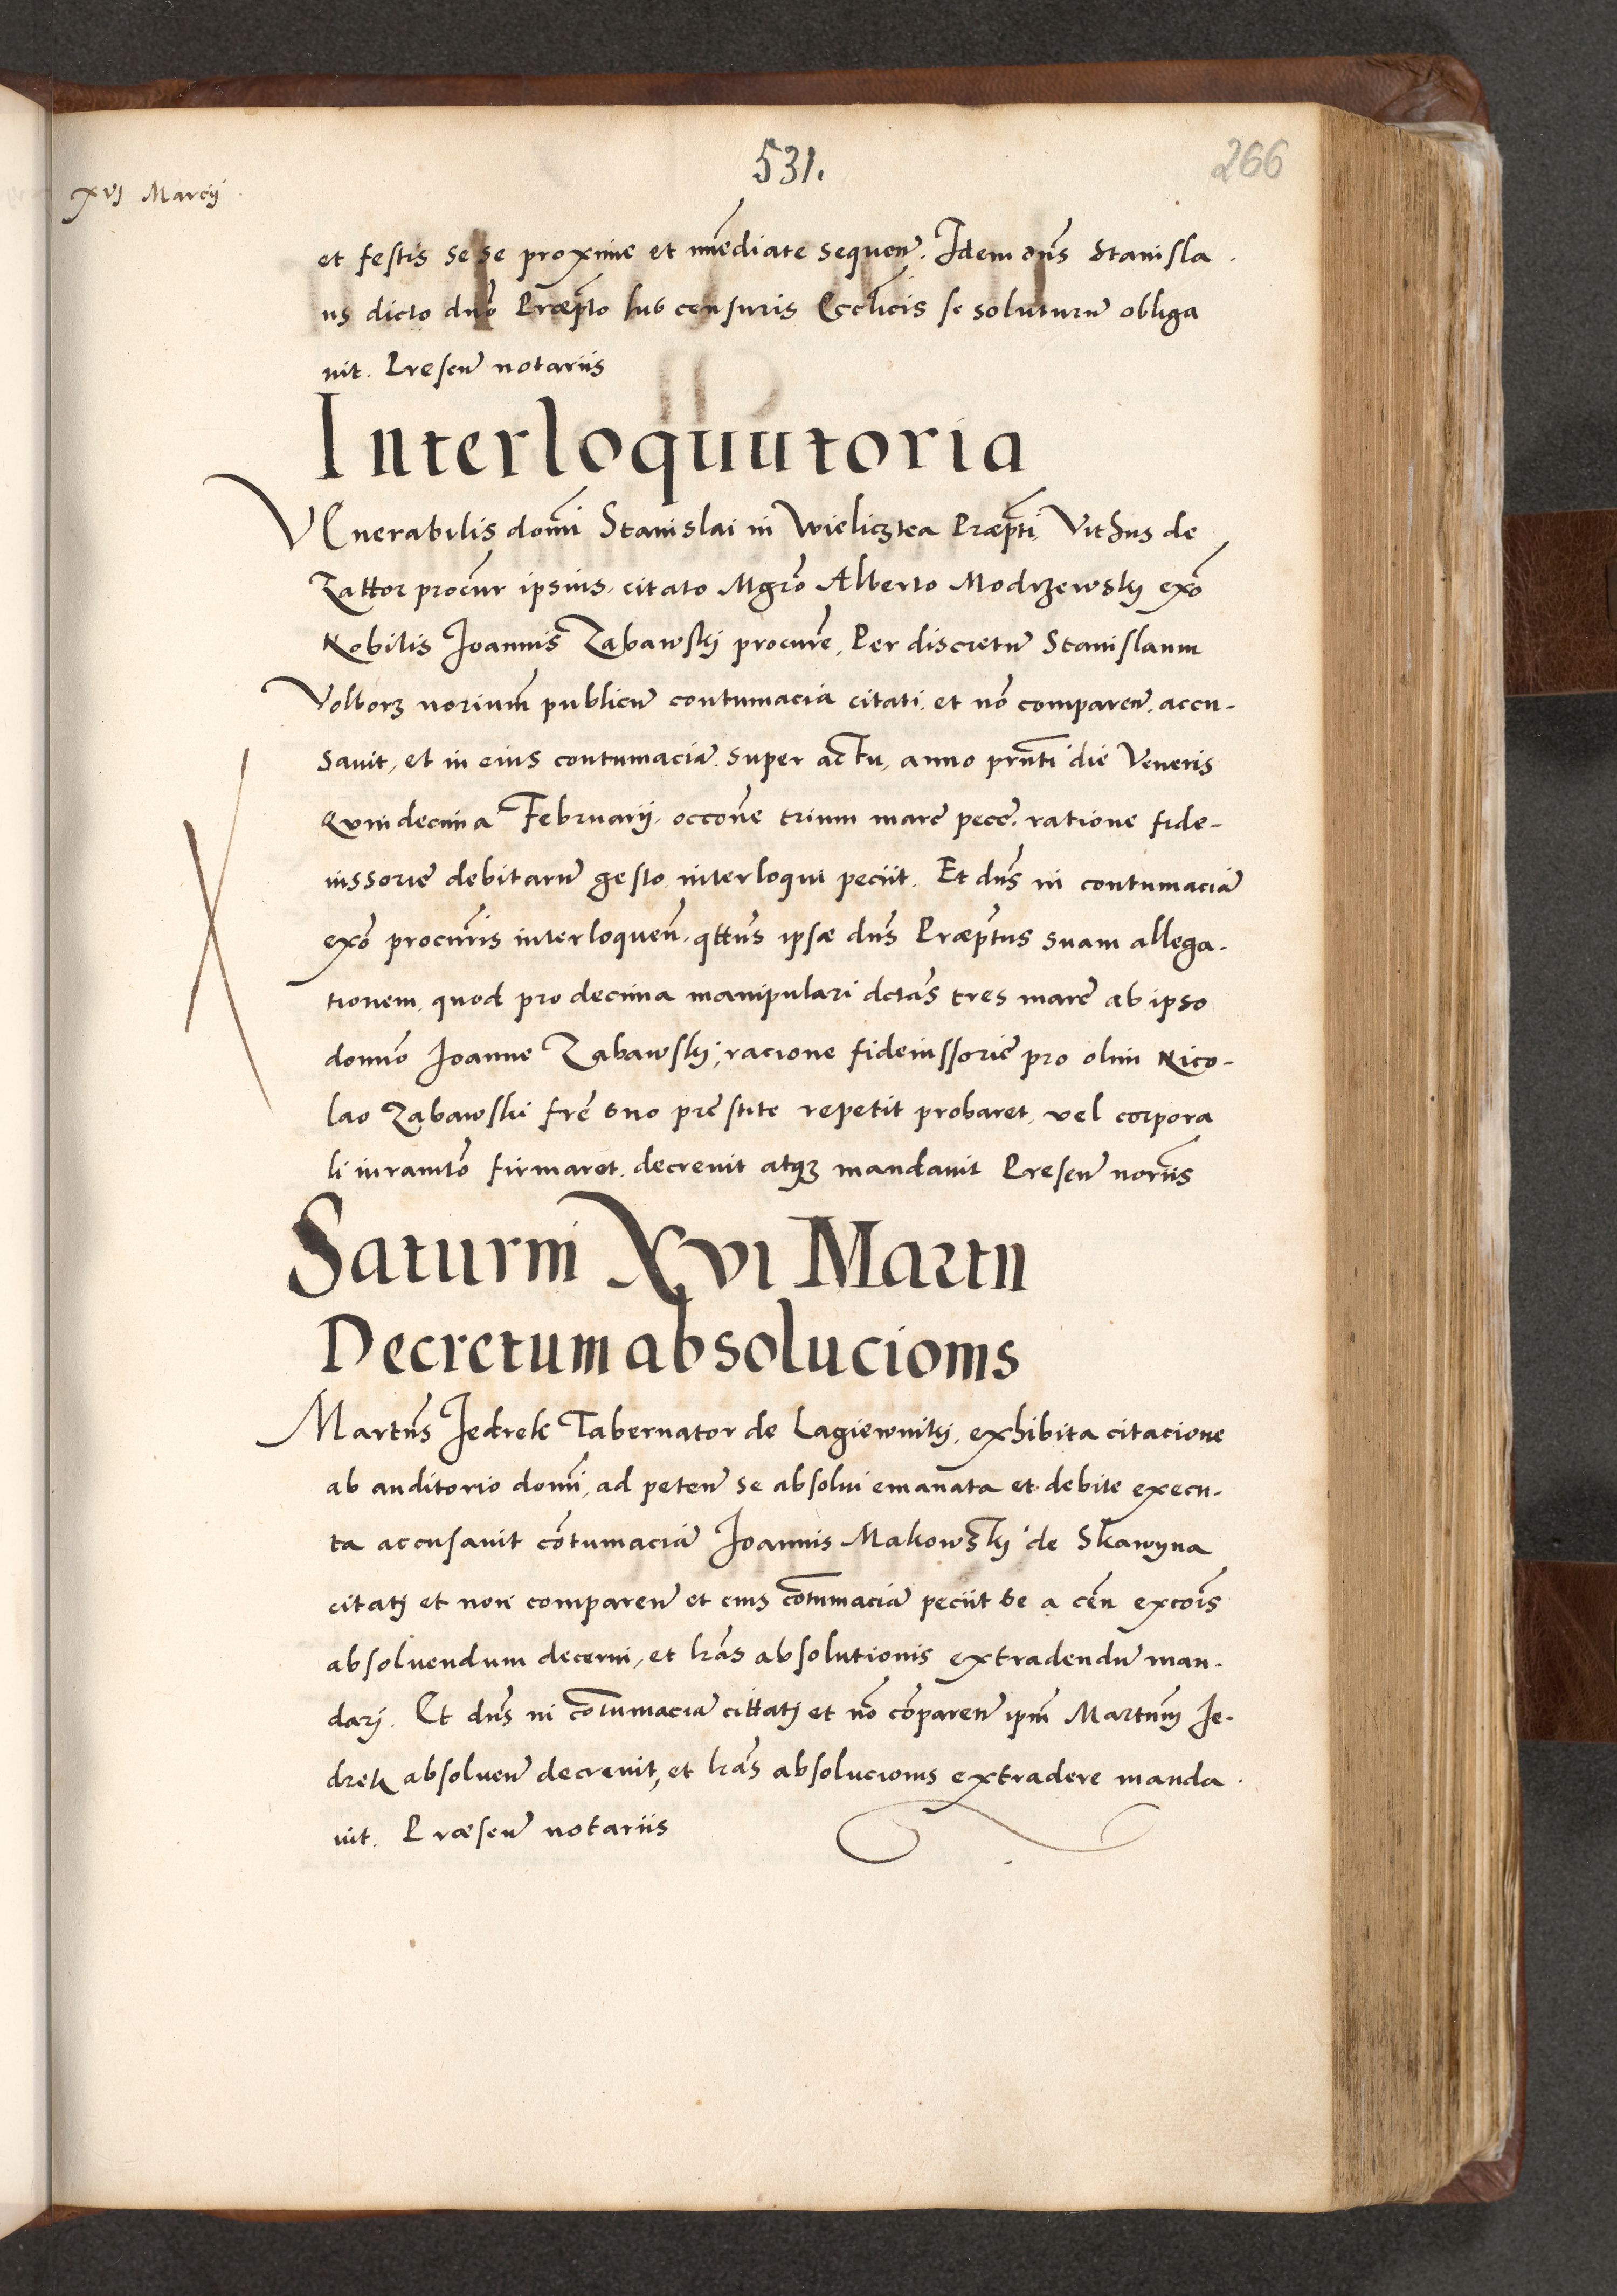 531.
266
XVI Marcij
et festis sese proxime et imediate sequen̄. Idem dn̄s Stanisla
us dicto dnō Præpto sub censuris Ecclicis se soluturū obliga
uit. Presen̄ notariis
Interloquutoria
VEnerabilis domī Stanislai in Wieliczka Præpti Vithus de
Zattor procūr ipsius, citato Mgrō Alberto Modrzewskj exō
Nobilis Joannis Zabawskj procurē, Per discretū Stanislaum
Volborz noriūm publicū contumaciā citati, et nō comparen̄, accu-
sauit, et in eius contumaciā super actu, anno prn̄ti die Veneris
Quindecima Februarij, occōne trium marc̄ pecc̄, ratione fide-
iussorie debitarū gesto interloqui peciit. Et dn̄s in contumaciā
exō procurīs interloquen̄, qttus ipsæ dn̄s Præptus suam allega-
tionem, quod pro decima manipulari dctās tres marc̄ ab ipso
domīo Joanne Zabawskj, racione fideiussorie pro olim Nico-
lao Zabawski frē suo prestite repetit probaret, vel corpora
li iuramtō firmaret, decreuit atqz mandauit Presen̄ noriis
Saturni XVI Martii
Decretum absolucionis
Martn̄s Jedrek Tabernator de Lagiewnikj, exhibita citacione
ab auditorio domī, ad peten̄ se absolui emanata et debite execu-
ta accusauit cōtumaciā Joannis Makowskj de Skawyna
citatj et non comparen̄ et eius cōtumaciā peciit se a cēn excōis
absoluendum decerni, et lrās absolutionis extradendū man-
darj. Et dn̄s in cōtumaciā cittatj et nō cōparen̄ ipm̄ Martnm̄ Je-
drek absoluen̄ decreuit, et lrās absolucionis extradere manda
uit. Præsen̄ notariis